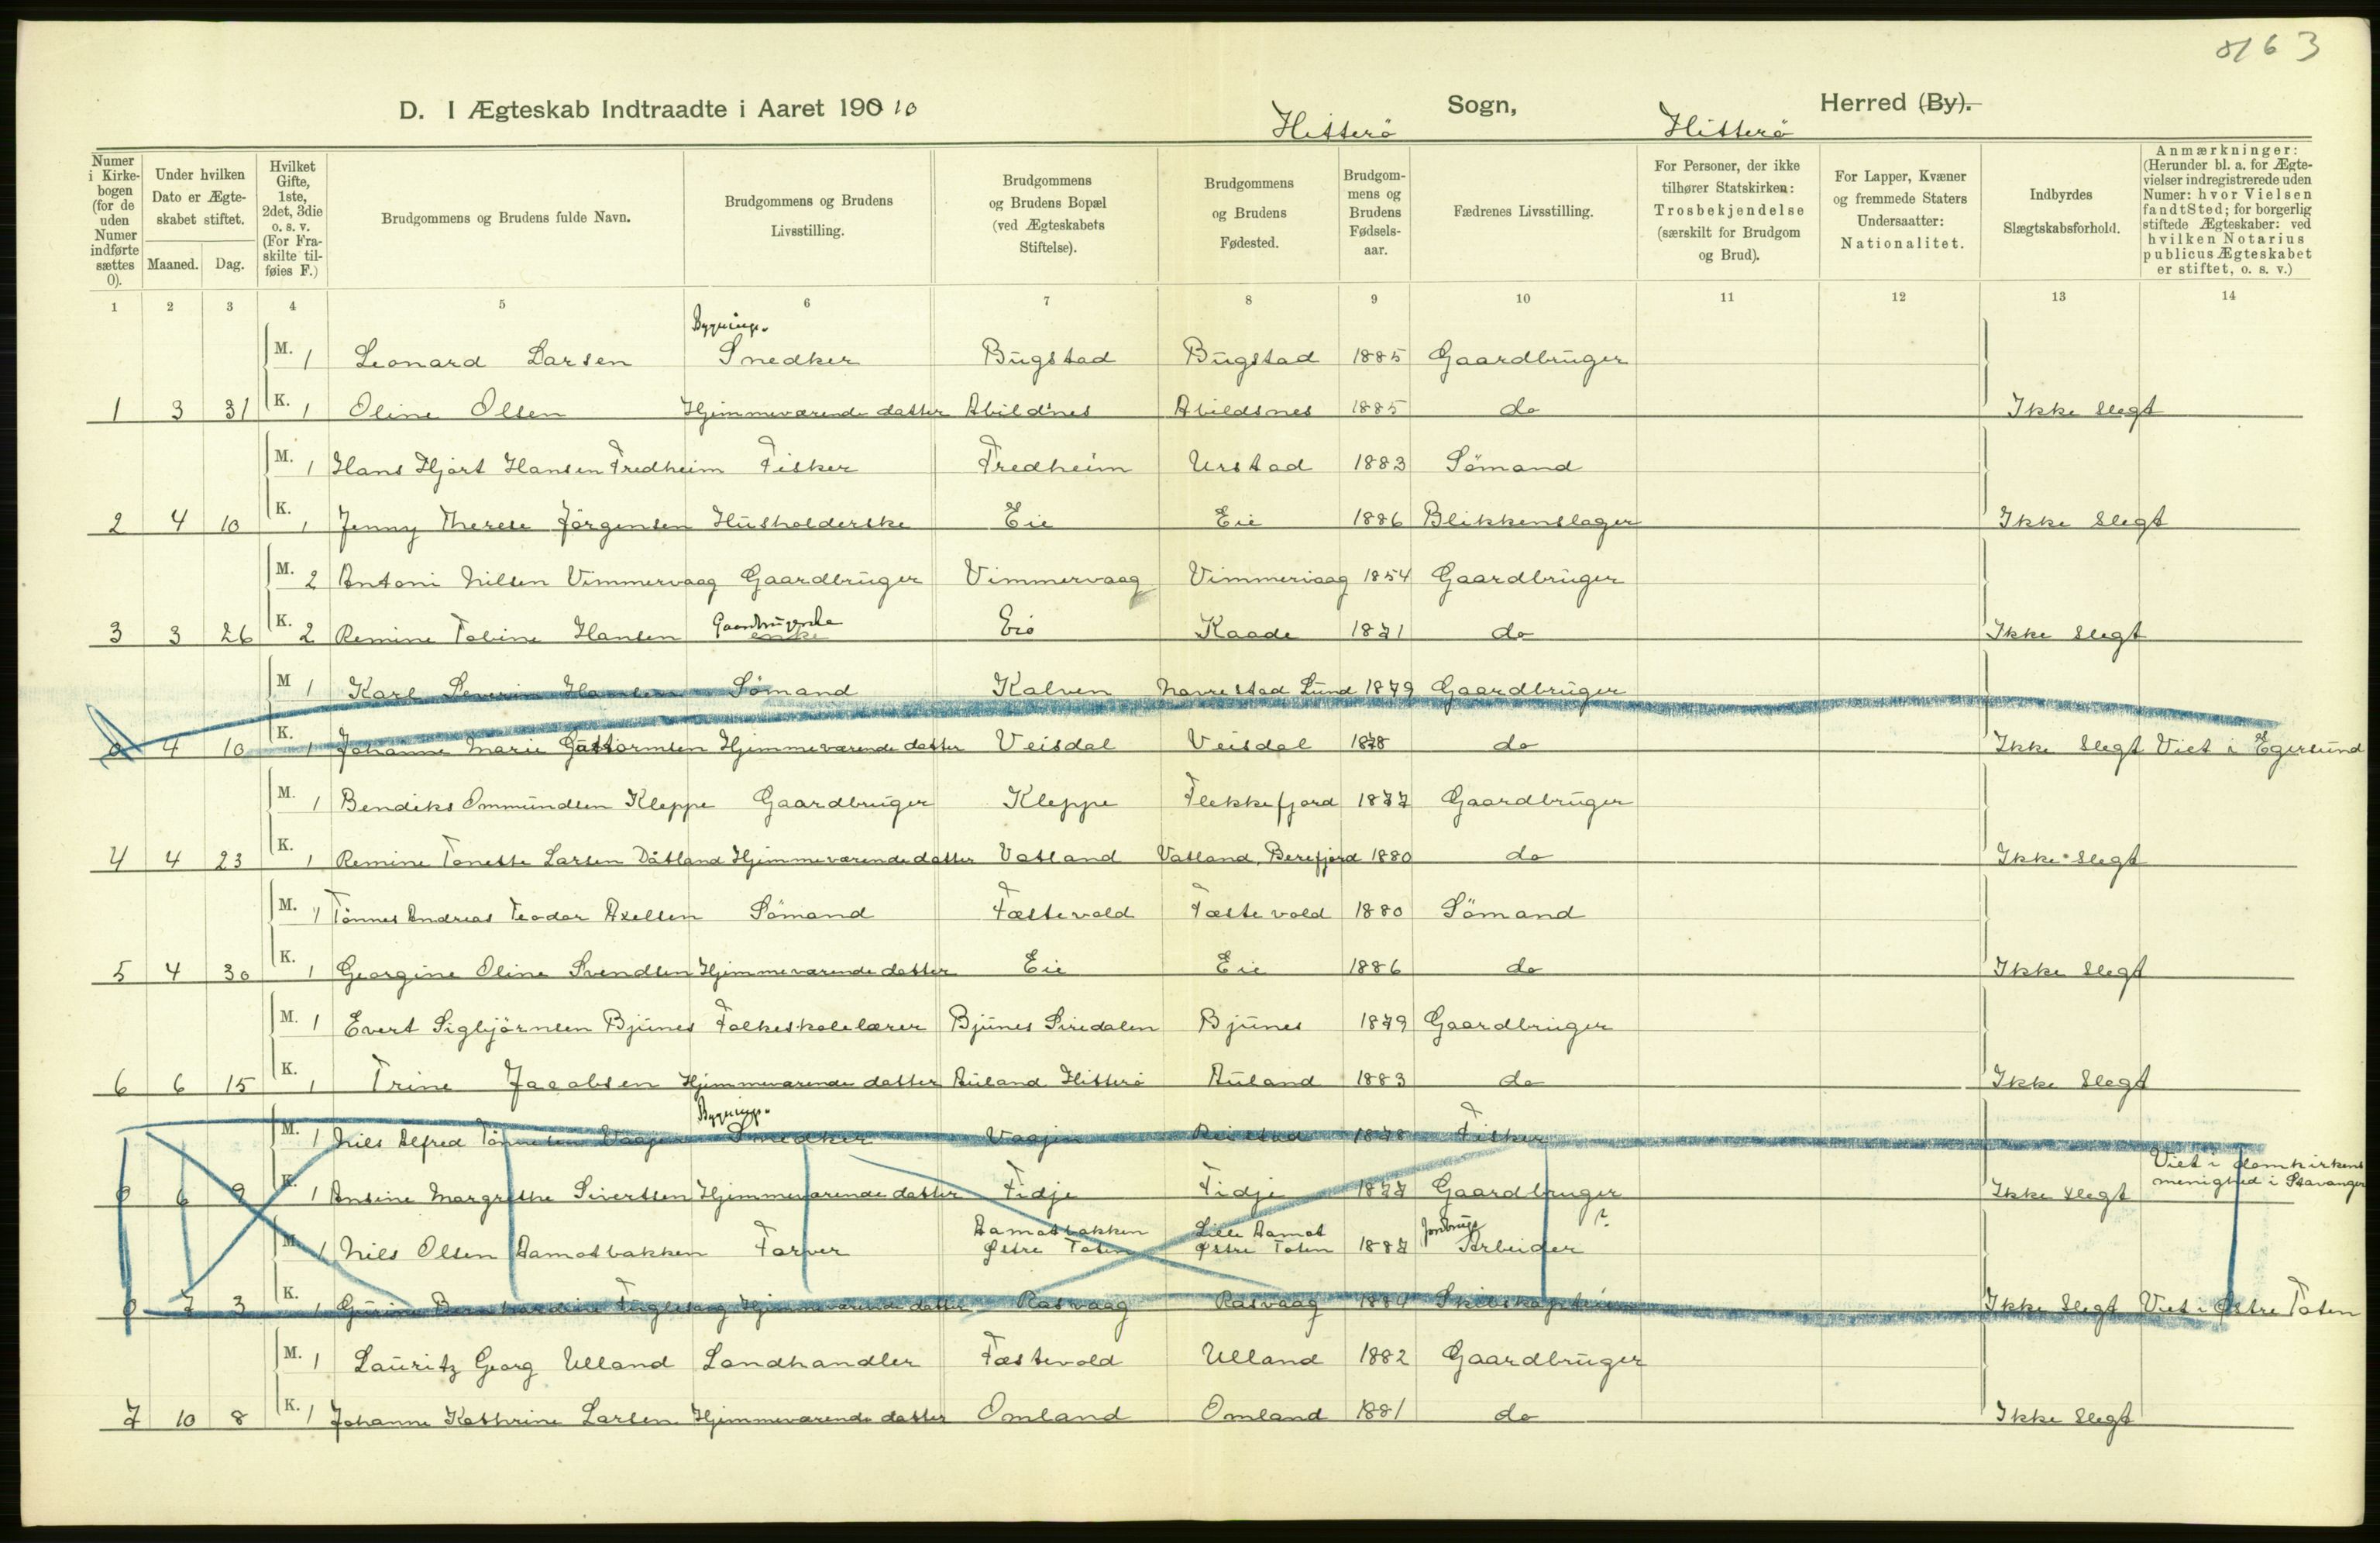 8163
D. I Ægteskab Indtraadte i Aaret 190 10 Hitterö Sogn, Hitterö Herred (By).
Numer i Kirkebogen (for de uden Numer indførte sættes 0).
Under hvilken Dato er Ægteskabet stiftet.
Maaned. Dag.
Hvilket Gifte, 1ste, 2det, 3die o. s. v. (For Fraskilte tilføies F.)
Brudgommens og Brudens fulde Navn.
Brudgommens og Brudens Livsstilling.
Brudgommens og Brudens Bopæl (ved Ægteskabets Stiftelse).
Brudgommens og Brudens Fødested.
Brudgommens og Brudens Fødselsaar.
Fædrenes Livsstilling.
For Personer, der ikke tilhører Statskirken: Trosbekjendelse (særskilt for Brudgom og Brud).
For Lapper, Kvæner og fremmede Staters Undersaatter: Nationalitet.
Indbyrdes Slægtskabsforhold.
Anmærkninger: (Herunder bl. a. for Ægtevielser indregistrerede uden Numer: hvor Vielsen fandt Sted; for borgerlig stiftede Ægteskaber: ved hvilken Notarius publicus Ægteskabet er stiftet, o. s. v.)
1 2 3 4 5 6 7 8 9 10 11 12 13 14
M. 1 Leonard Larsen Bygnings- Snedker Bugstad Bugstad 1885 Gaardbruger
1 3 31 K. 1 Oline Olsen Hjemmeværende datter Abildsnes Abildsnes 1885 do Ikke slegt
M. 1 Hans Hjort Hansen Fredheim Fisker Fredheim Urstad 1883 Sömand
2 4 10 K. 1 Jenny Therese Jörgensen Husholderske Eie Eie 1886 Blikkenslager Ikke slegt
M. 2 Antoni Nilsen Vimmervaag Gaardbruger Vimmervaag Vimmervaag 1854 Gaardbruger
3 3 26 K. 2 Remine Tobine Hansen enke Eie Kaade 1871 do Ikke slegt
M 1 Karl Severin Hansen Sömand Kalven Navrestad Lund 1879 Gaardbruger
0 4 10 K. 1 Johanne Marie Guttormsen Hjemmeværende datter Veisdal Veisdal 1878 do Ikke slegt Viet i Egersund
M. 1 Bendiks Ommundsen Kleppe Gaardbruger Kleppe Flekkefjord 1877 Gaardbruger
4 4 23 K. 1 Remine Tonette Larsen Hjemmeværende datter Vatland Vatland 1880 do Ikke slegt
M. 1 Tönnes Andreas Teodor Axelsen Sömand Fæstevold Fæstevold 1880 Sömand
5 4 30 K. 1 Georgine Oline Svendsen Hjemmeværende datter Eie Eie 1886 do Ikke slegt
M. 1 Evert Sigbjörnsen Bjunes Folkeskolelærer Bjunes Siredalen Bjunes 1879 Gaardbruger
6 6 15 K. 1 Trine Jacobsen Hjemmeværende datter Auland Hitterö Auland 1883 do Ikke Slegt
M. 1 Nils Alfred Tönnesen Vaagen Bygnings- Snedker Vaagen 1878 Fisker
0 6 9 K. 1 Ansine Margrethe Sivertsen Hjemmeværende datter Fidje Fidje 1877 Gaardbruger Ikke slegt Viet i domkirkens menighed i Stavanger
M. 1 Nils Olsen Aamotbakken Farver Aamotbakken Østre Toten Lille Aamot Østre Toten 1887 Jordbrugs Arbeider ?
0 7 3 K. 1 Hjemmeværende datter Rasvaag Rasvaag 1884 Skibskaptein Ikke slegt Viet i Østre Toten
M. 1 Lauritz Georg Ulland Landhandler Fæstevold Ulland 1882 Gaardbruger
7 10 8 K. 1 Johanne Kathrine Larsen Hjemmeværende datter Omland Omland 1881 do Ikke slegt